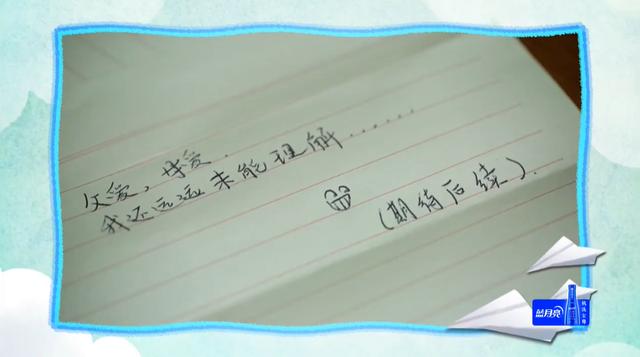 父爱，母爱.
我还远远未能理解......
(期待后续).
蓝月亮